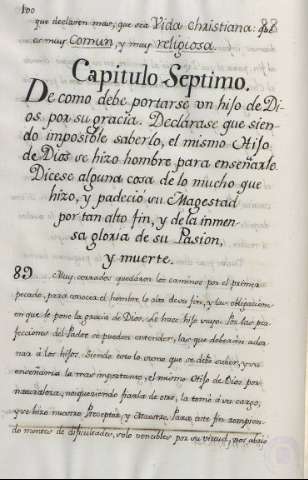 100
que declaren mas, que sea Vida Christiana: que 88
es muy Comun, y muy religiosa.
Capitulo Septimo.
De como debe portarse un hijo de Di-
os por su gracia. Declárase que sien-
do imposible saberlo, el mismo Hijo
de Dios se hizo hombre para enseñarle.
Dicese alguna cosa de lo mucho que
hizo, y padeció su Magestad
por tan alto fin, y de la inmen-
sa gloria de su Pasion,
y muerte.
89 Muy cerrados quedaron los caminos por el primer
pecado, para conocer el hombre lo alto de su fin, y las obligaciones
en que le pone la gracia de Dios. Le hace hijo suyo. Por las per-
fecciones del Padre se pueden entender, las que deberán ador-
nar á los hijos. Siendo esto lo sumo que se debe saber, y su
enseñanza la mas importante, el mismo Hijo de Dios por
naturaleza, no queriendo fiarla de otro, la tomó á su cargo,
y se hizo nuestro Preceptor, y Maestro. Para este fin rompien-
do montes de dificultades, solo vencibles por su virtud, nos abrió